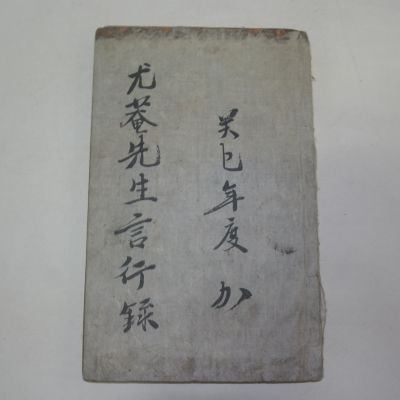 尤菴先生言行錄
癸巳年度